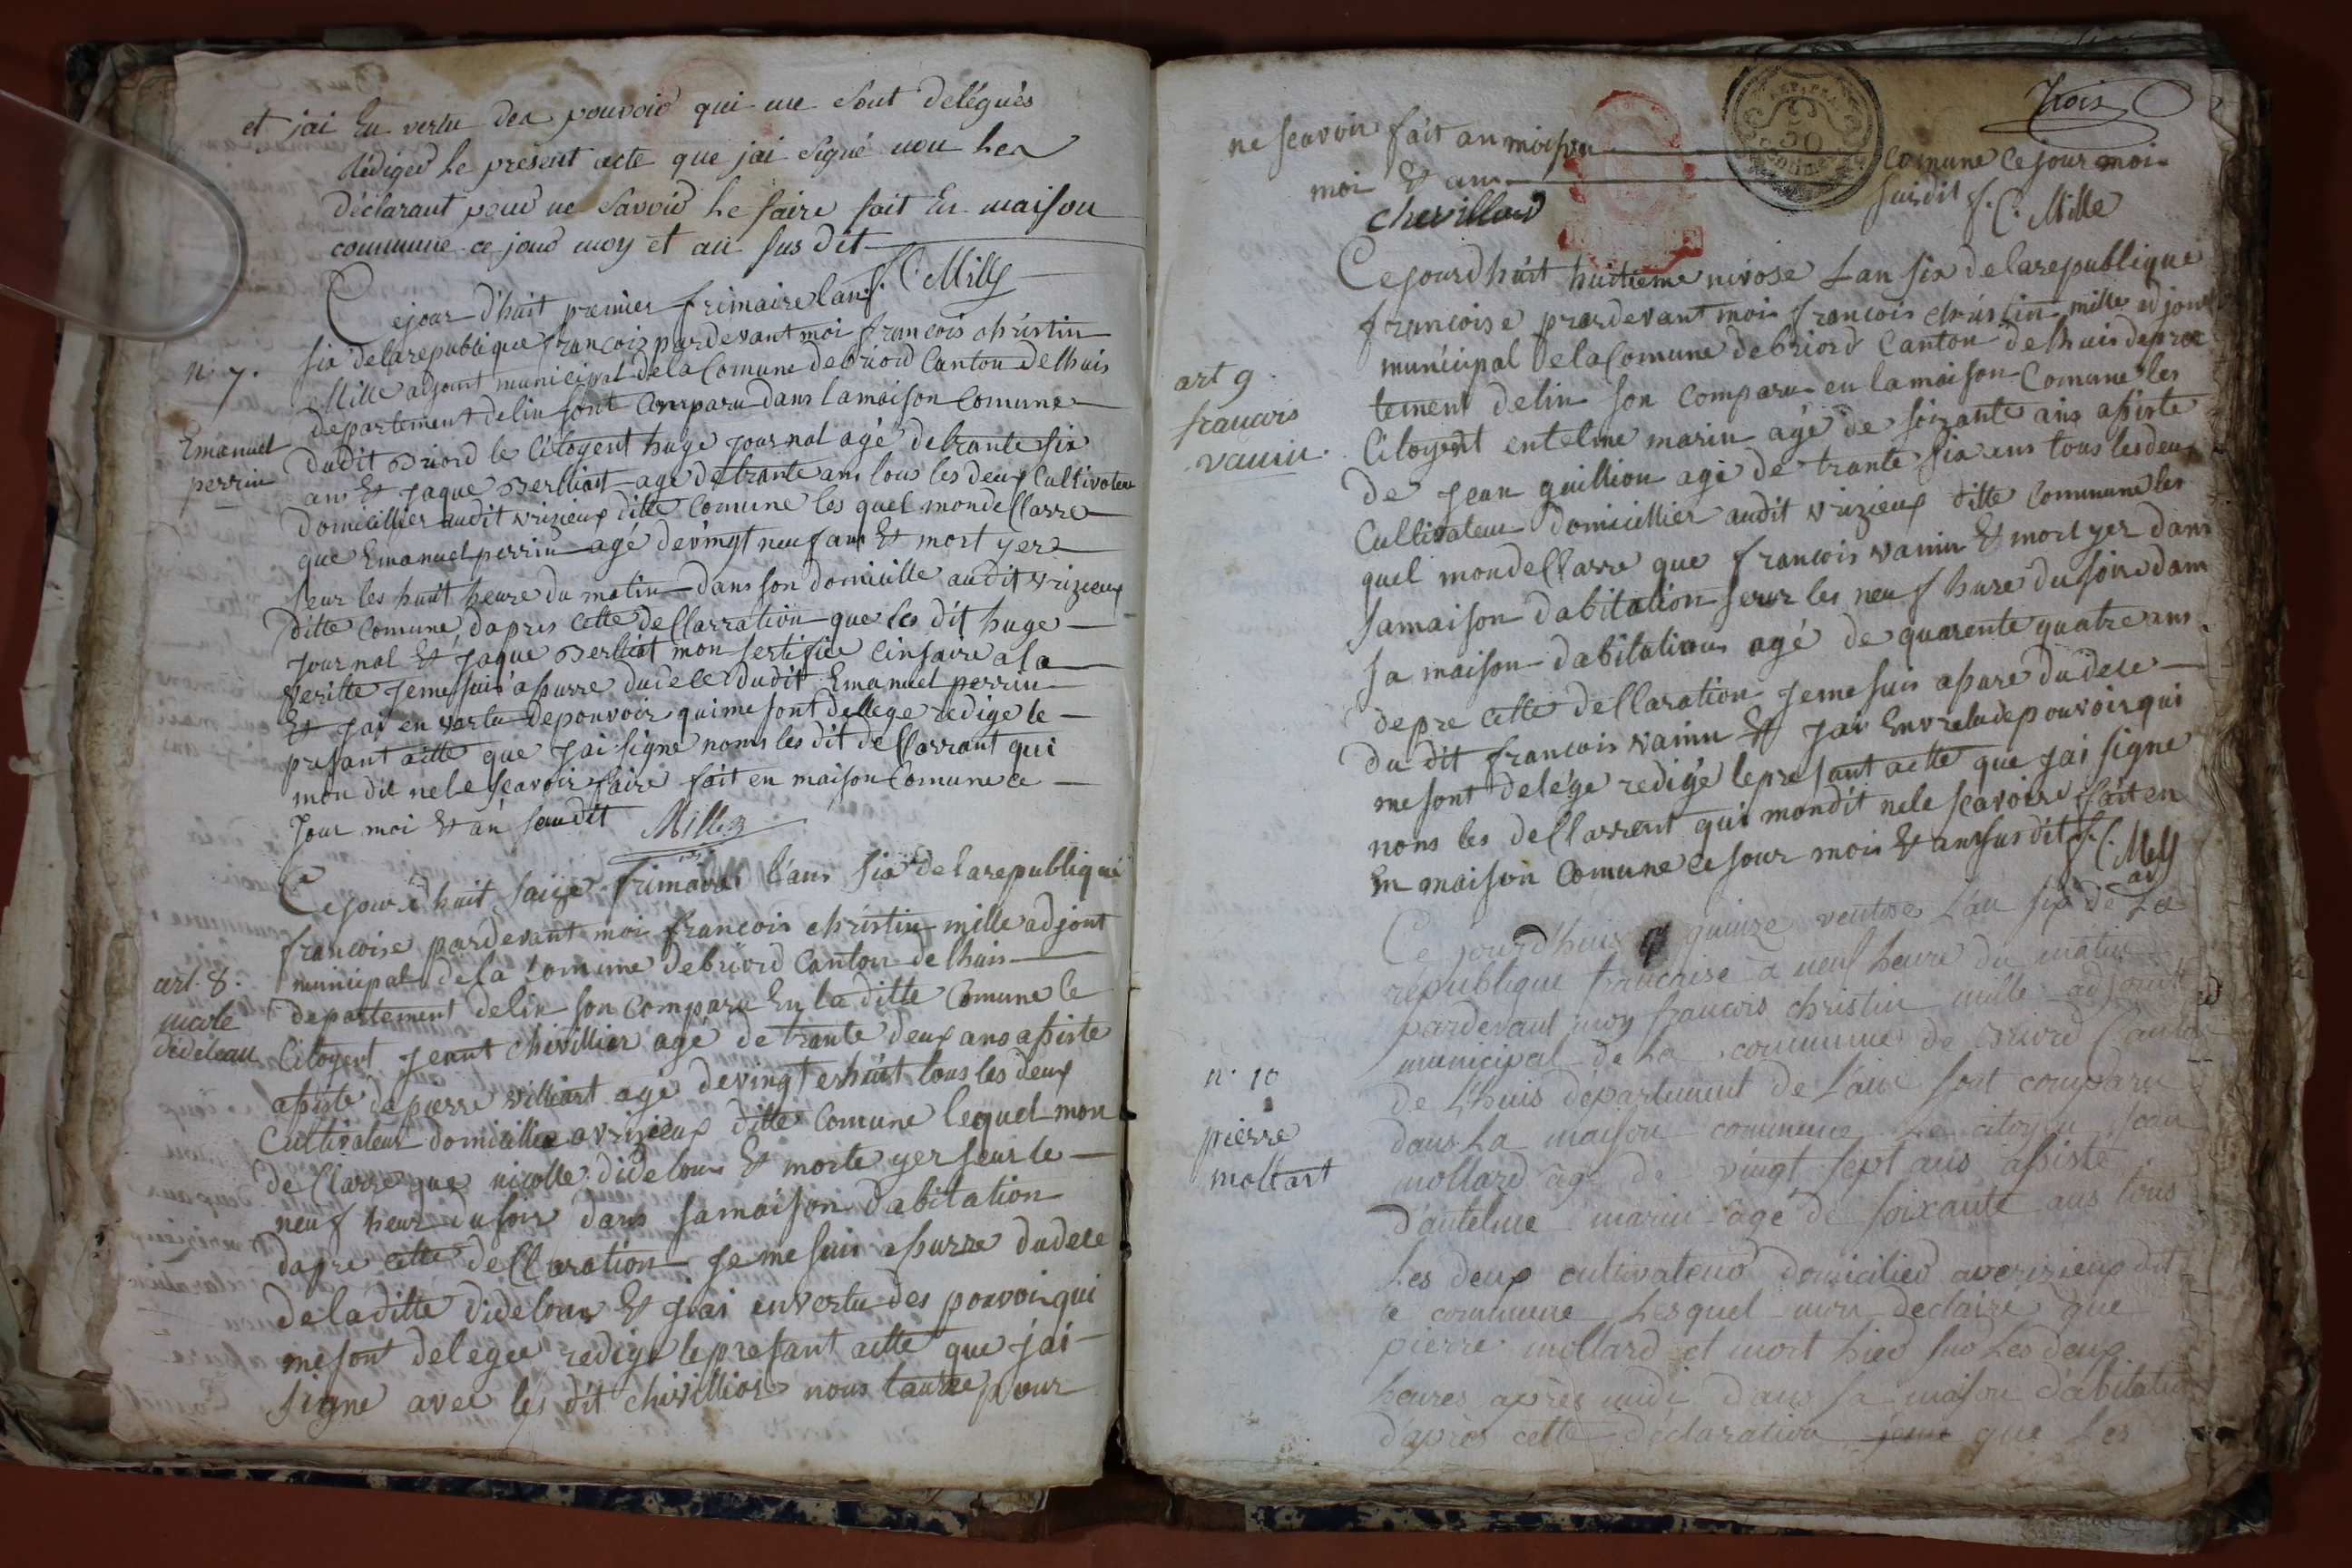 et jai En vertu des pouvoir qui me sont delégués
rédiger le présent acte que jai signé non les
déclarant pour ne savoir le faire fait En maison
commune ce jour moy et an sus dit
f. C. Mille
Cejour d'huit premier frimaire lan
six delarepublique francois pardevant moi francois christin
Mille adjoint municipal dela Comune debriord Canton delhuis
n. 7.
departement delin sont comparu dans lamaison Comune
Emanuel
perrin
dudit Briord le Citoyent huge journal agé detrante six
ans & jaque Berlliat agé detrante ans tous les deux Cultivateur
domicillier audit vrizieux ditte Comune les quel mondellarre
que Emanuel perrin agé devingt neuf ans & mort yer
seur les huit heure du matin dans son domicille audit vrizieux
ditte Comune, dapres cette dellarration que les dit huge
journal & jaque Berlliat mon sertifiee cinsaire a la
veritte jeme suis apurre dudece dudit Emanuel perrin
& jai en vertu depouvoir quime sont dellege redige le
presant aitte que jai signe noms les dit dellarrant qui
mon dit nele scavoir faire fait en maison Comune ce
jour moi & an seudit Mille
Cejour dhuit saize frimaire l'ans six delarepublique
francoise pardevant moi francois christin mille adjont
municipal dela Comune debriord Canton delhuis
art. 8.
nicole
dideleau
departement delin son comparu En la ditte Comune le
Citoyent jeant chivillier agé detrante deux ans asiste
asiste de pierre villiart age devingt eshuit tous les deux
Cultivateur domicillie a vrizieux ditte Comune lequel mon
dellarre que nicolle didelous & morte yer seur le
neuf heur dusoir dans samaison dabitation
dapre cette dellaration jeme suis apurre dudece
deladitte didelous & jai envertu des pouvoir qui
mesont delegee redige lepresant aitte que jai
signe avec les dit chivillier nous lautre pour
Trois
ne scavoir fait an maison comune ce jour moi
moi & ans susdit f. C. Mille
chevillard
Cejourdhuit huitieme nivose Lan six delarepublique
francoise pardevant moi francois christin mille adjoint
municipal delaComune debriord Canton delhuis depar
art 9.
francois
vanin.
tement delin son comparu en lamaison Comune les
Citoyent entelme marin agé de soizante ans asiste
de jean guillion agé de trante six ans tous lesdeux
Cultivateur domicillier audit vrizieux ditte Commune les
quel mondellarre que francois vanin & mort yer dans
samaison dabitation seur les neuf hure dusoir dans
sa maison dabitation agé de quarente quatre ans
depre cette dellaration jemesuis apure dudece
du dit francois vanin & jai Envretudepouvoir qui
mesont delége redigé lepresant actte que jai signe
nons les dellarrent qui mondit nele scavoire fait en
En maison Comune ce jour mois & an susdit f. C. Mille
Ce jourd'huis quinze ventose L'an six de La
republique francaise a neuf heure du matin
pardevant moy francois christin mille adjoint
municipal de La commune de Briord Canton
n. 10
pierre
mollart
de L'huis departement de L'ain sont comparu
dans La maison commune Le citoyen jean
mollard agé de vingt sept ans asisté
d'antelme marin agé de soixante ans tous
Les deux cultivateur domicilier averizieux dit
e commune Lesquel mon declairé que
pierre mollard et mort hier sur Les deux
heures apres midi dans sa maison d'abitation
d'apres cette déclaration jeme que Les